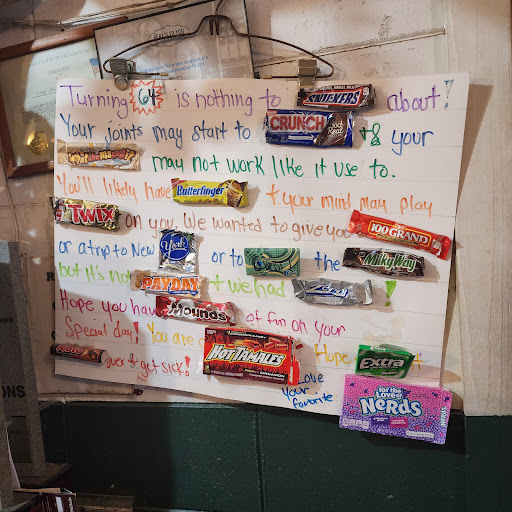 Turning 64 is nothing to SNICKERS about!
Your joints may start to CRUNCH & your
Whatchamacallit may not work like it use to.
You'll likely have Butterfinger & your mind may play
TWIX on you. We wanted to give you 100 GRAND
or a trip to New York or to the Milky Way
but it's not PAYDAY & we had Zero!
Hope you have Mounds of fun on your
Special day! You are a HOT TAMALES Hope
ROLO over & get sick! Extra
Love
Your
favorite
for the Love of NERDS